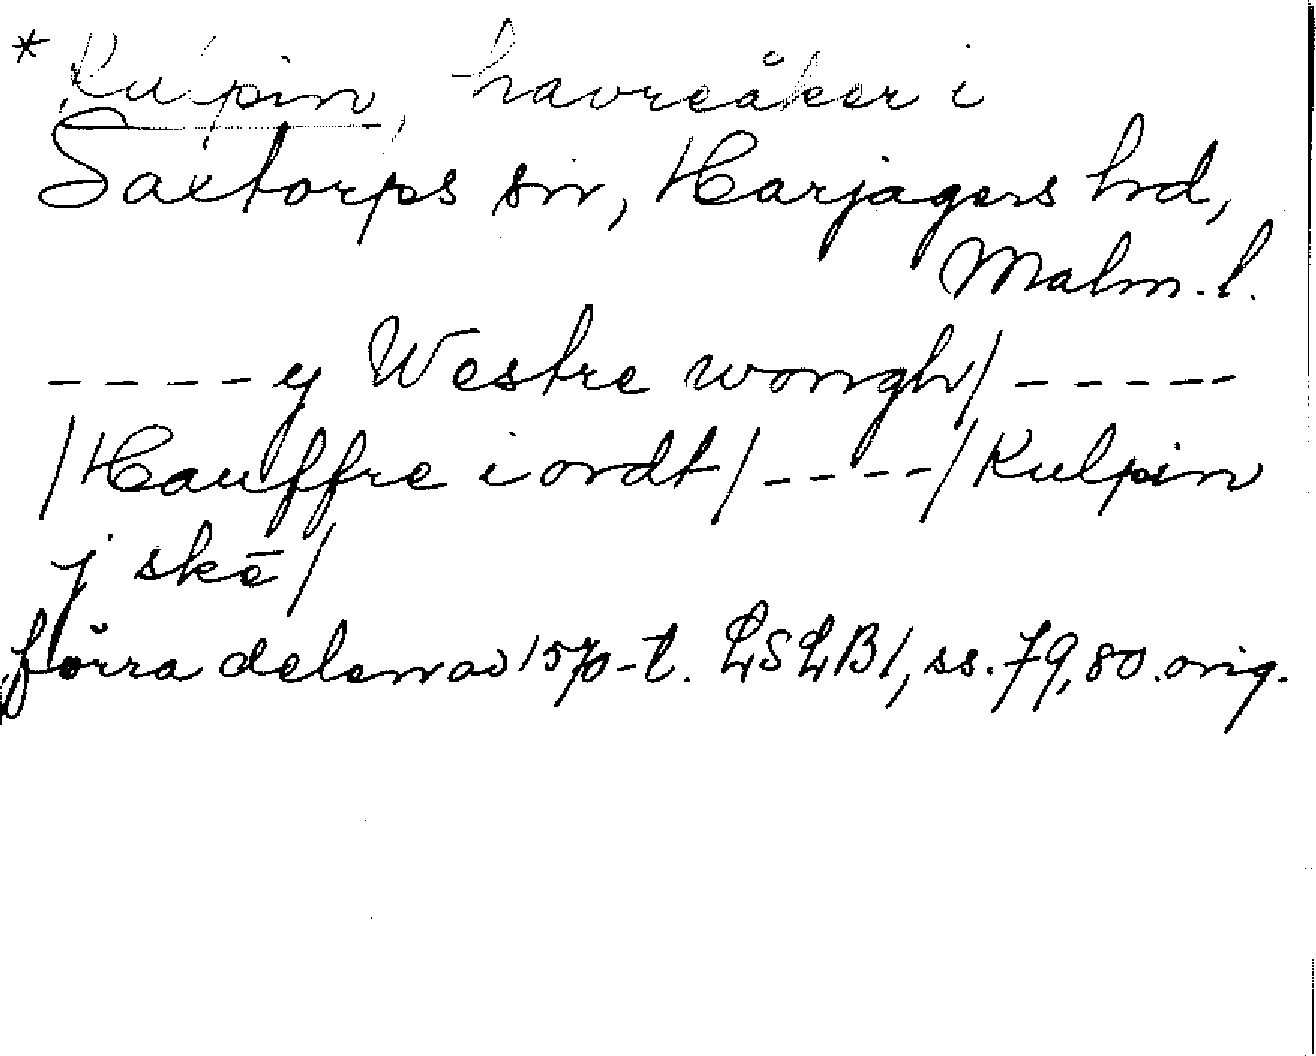 * Kulpin, havreåker i
Saxtorps sn, Harjagers hd,
Malm. l.
- - - - - y Westre wongh/ - - - - -
/Hauffre iordt/ - - - - /Kulpin
j skē/
förra delen av 1570-t. LSLB1, ss. 79, 80. orig.